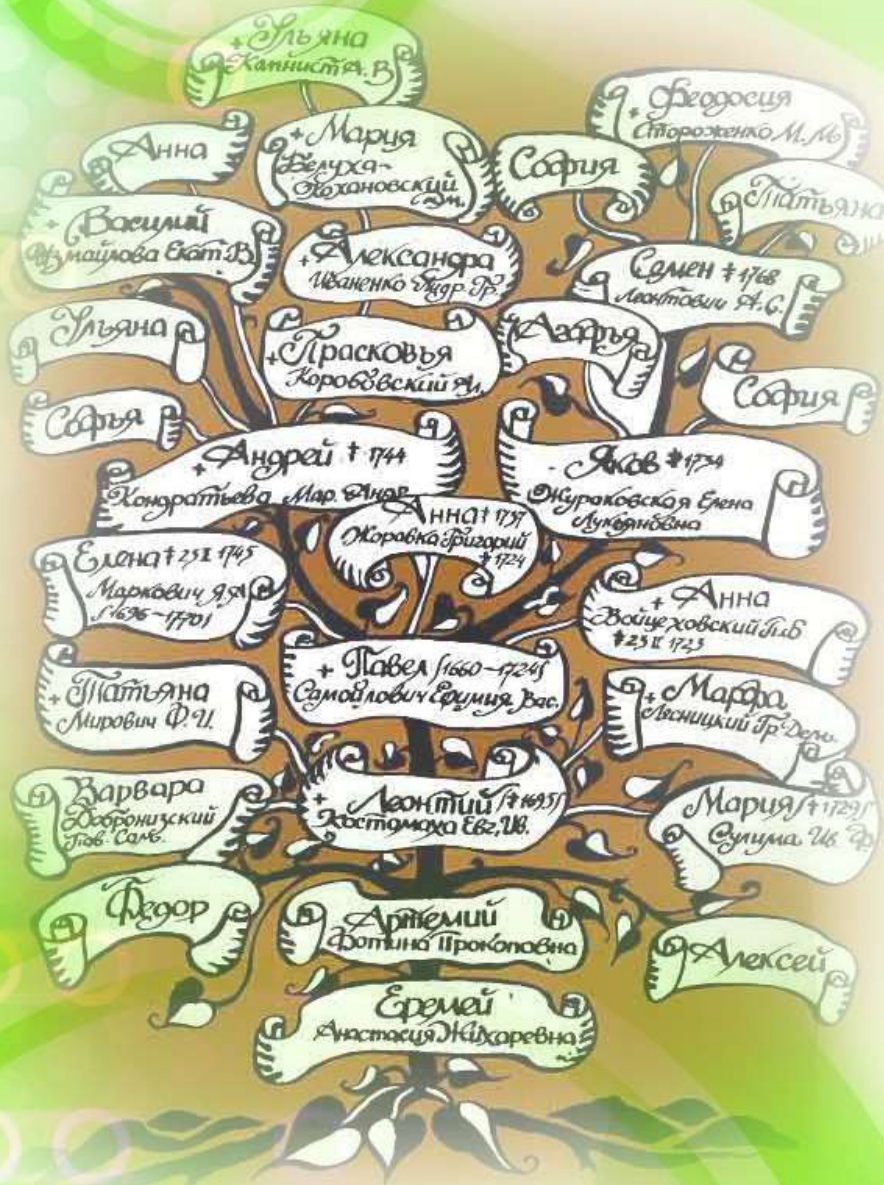 + Ульяна
Капнист А. В.
+ Феодосия
Стороженко М. М.
Анна
+ Мария
Белуха-
Кохановский
Дм.
София
Татьяна
+ Василий
Измайлова Екат. В.
+ Александра
Иваненко Гр.
Семен ‡ 1768
Леонтович А. С.
Ульяна
+ Прасковья
Коробовский
Агафья
София
Софья
+ Андрей † 1744
Кондратьева Мар. Андр.
Яков ‡ 1734
Жураковская Елена
Лукьяновна
Анна † 1737
Жоравка Григорий
‡ 1724
Елена † 23 X 1745
Маркович Я. А.
/1696-1770/
+ Анна
Войцеховский П. Б
‡ 23 II 1723
+ Павел /1660-1724/
Самойлович Ефимия Вас.
+ Татьяна
Мирович Ф. И.
+ Марфа
Лесницкий Гр. Дем.
Варвара
Добронизский
Пав. Сам.
+ Леонтий /‡ 1695/
Костомаха Евг. Ив.
Мария /‡ 1729/
Сулима Ив. Фр.
Федор
Артемий
Фотина Прокоповна
Алексей
Еремей
Анастасия Жихаревна